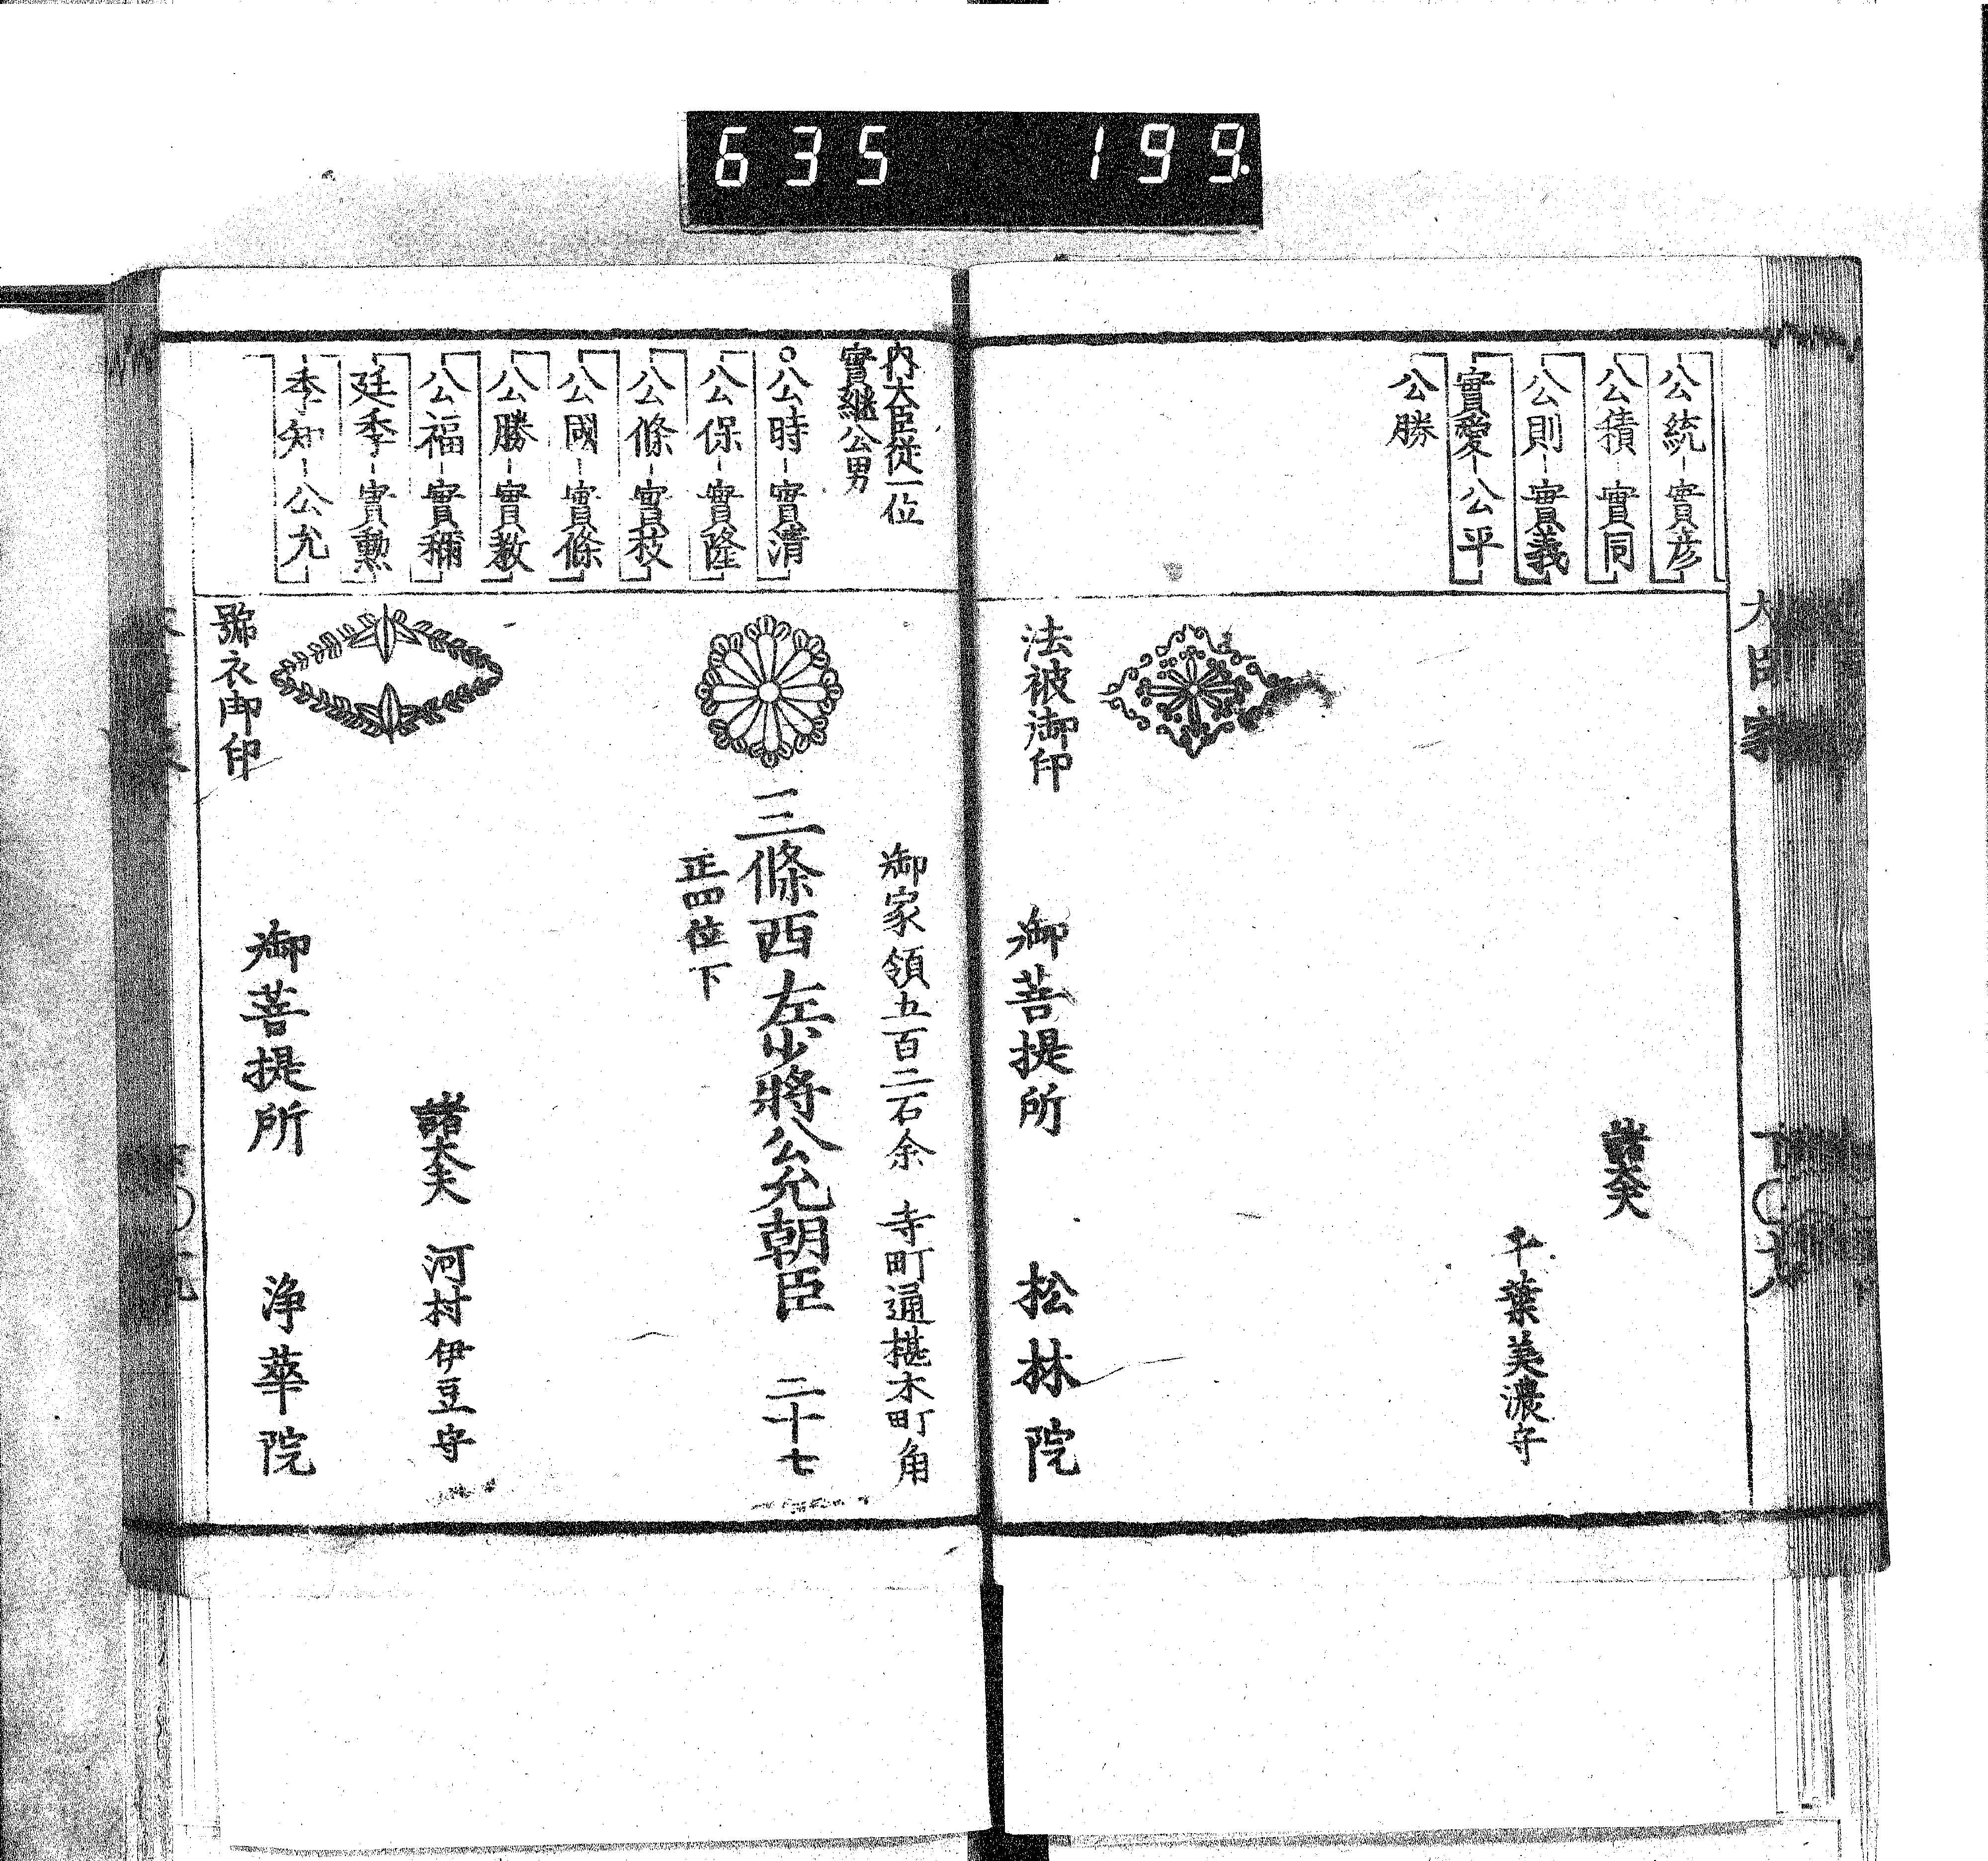 635 199.
公統-實彦
公積-實同
公則-實義
實愛-公平
公勝
諸大夫
千葉美濃守
法被御印
御菩提所 松林院
内大臣従一位
實継公男
○公時-實清
公保-實隆
公條-實枝
公國-實條
公勝-實教
公福-實稱
廷季-實勲
季知-公允
御家領五百二石余 寺町通椹木町角
三條西左少將公允朝臣 二十七
正四位下
諸大夫 河村伊豆守
號衣御印
御菩提所 浄華院